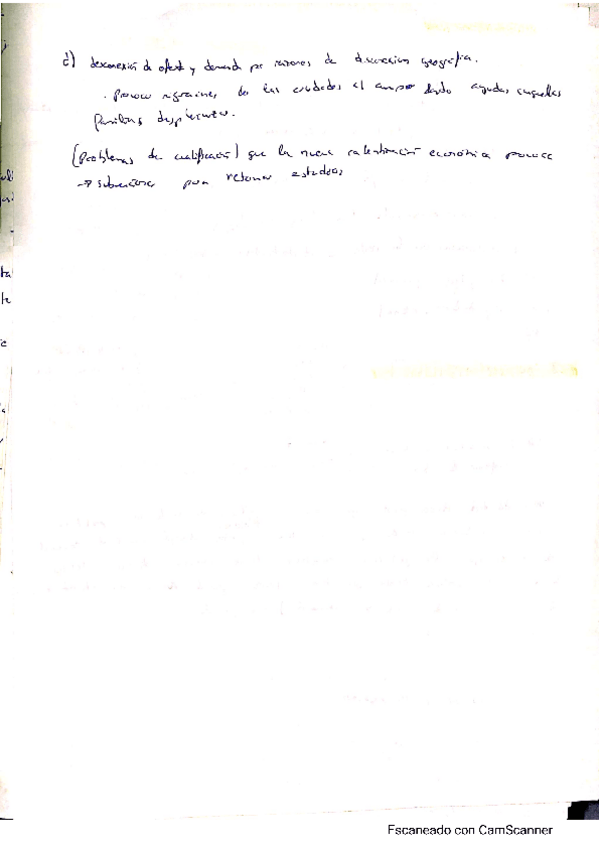 d) desconexión de oferta y demanda por razones de dirección geográfica.
. Provocar migraciones de las ciudades al campo dando ayudas aquellas
familias
(problemas de cualificación) que la nueva ralentización económica provoca
→ subvenciones para retomar estudios
Escaneado con CamScanner